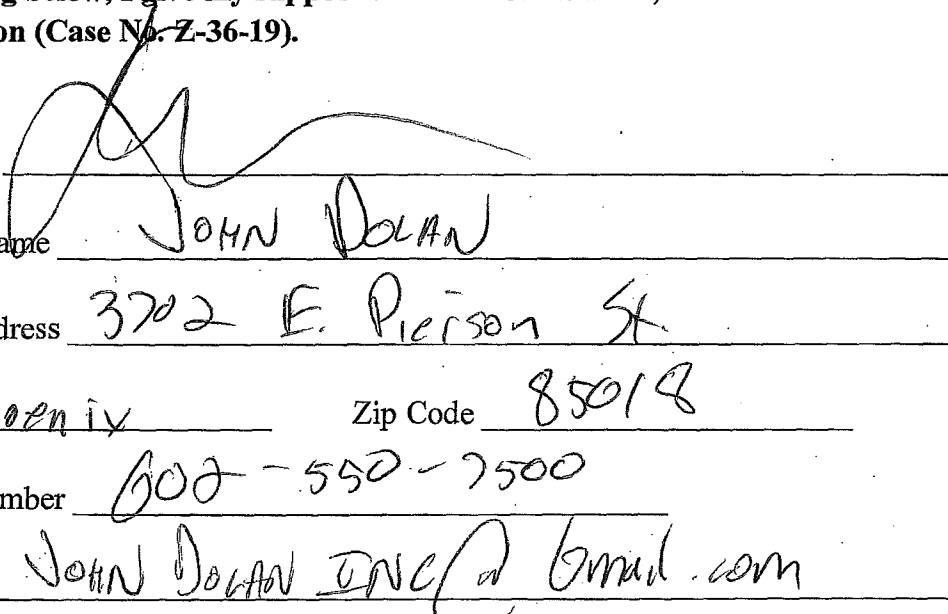 on (Case No. Z-36-19).
ame JOHN DOLAN
dress 3702 E. Pierson St.
oenix Zip Code 85018
mber 602-550-7500
JOHN DOLAN INC@Gmail.com